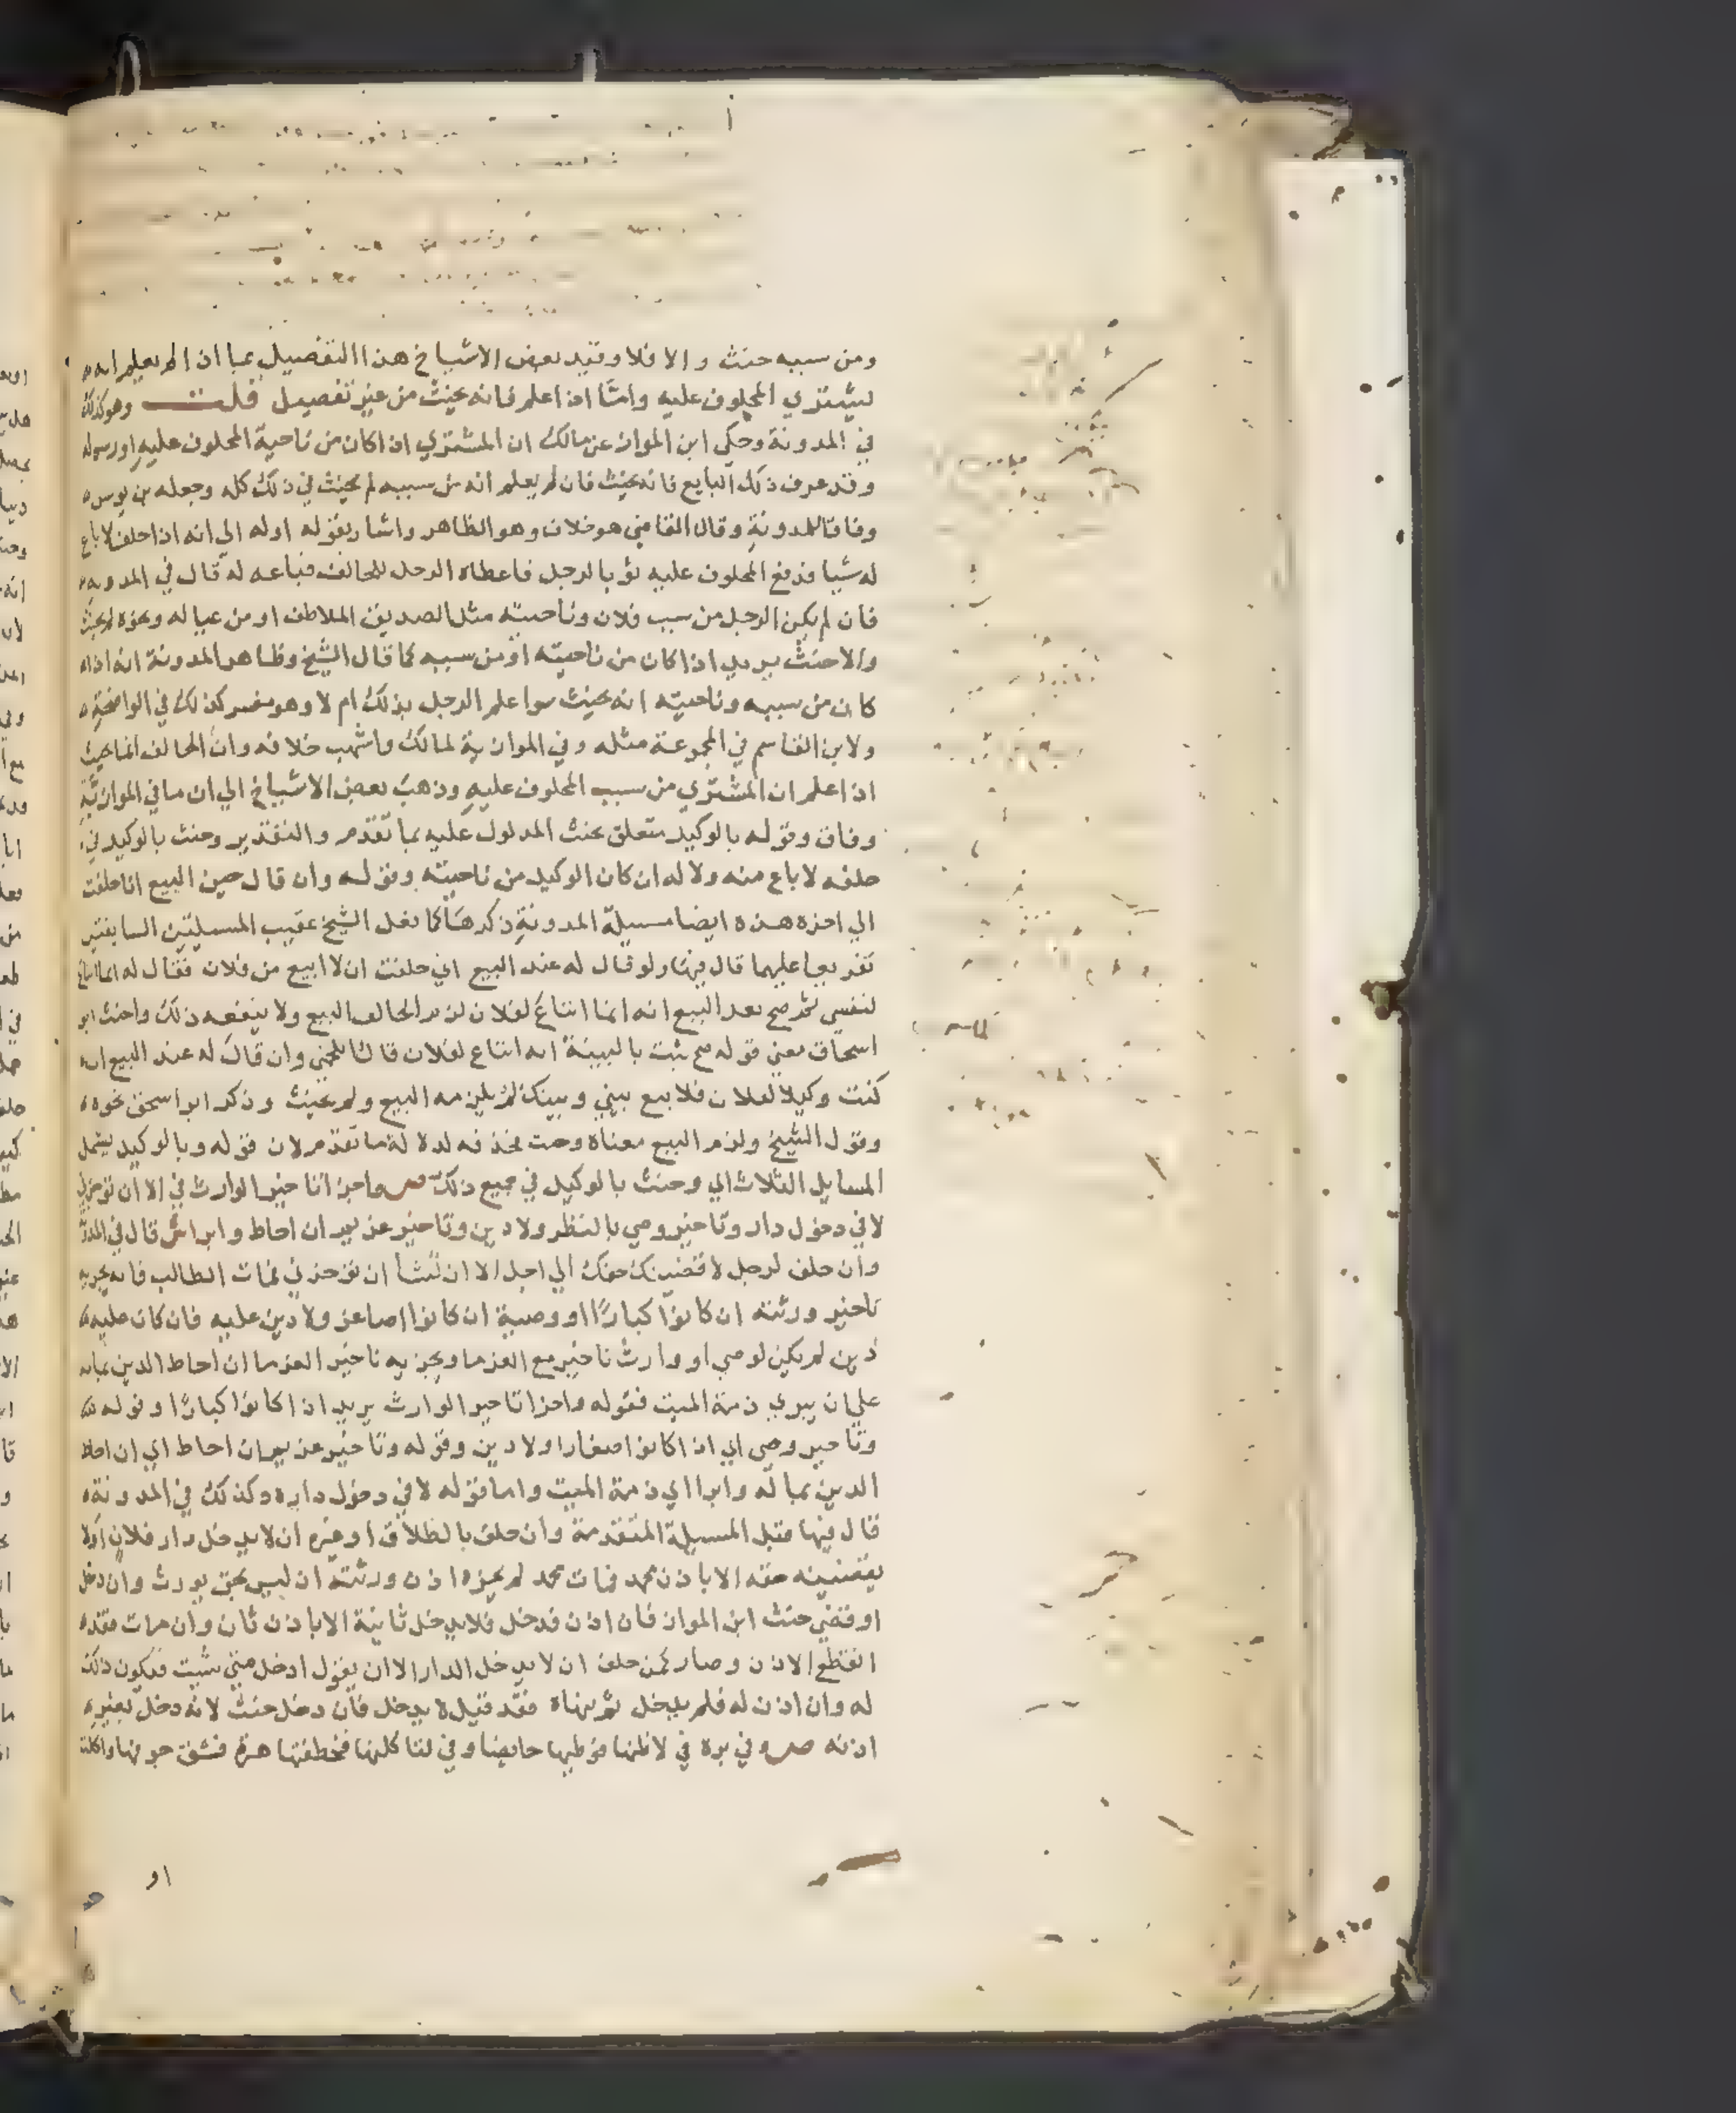 ومن سببه حنث والا فلا وقيد بعض الاشياخ هذا التفصيل بما اذا لم يعلم انه
يشتري للمحلوف عليه واما اذا علم فانه يحنث من غير تفصيل قلت وهو كذلك
في المدونة وحكى ابن المواز عن مالك ان المشتري اذا كان من ناحية المحلوف عليه او رسوله
وقد عرف ذلك البايع فانه يحنث فان لم يعلم انه من سببه لم يحنث في ذلك كله وجعله بن يونس
وفاقا للمدونة وقال القاضي هو خلاف وهو الظاهر واشار بقوله او له الي انه اذا حلف لا باع
له شيا فدفع المحلوف عليه ثوبا لرجل فاعطاه الرجل للحالف فباعه له قال في المدونة
فان لم يكن الرجل من سبب فلان وناحيته مثل الصديق الملاطف او من عياله ونحوه لم يحنث
والا حنث يريد اذا كان من ناحيته او من سببه كما قال الشيخ وظاهر المدونة انه اذا
كان من سببه وناحيته انه يحنث سوا علم الرجل بذلك ام لا وهو مفسر كذلك في الواضحة
ولابن القاسم في المجموعة مثله وفي الموازية لمالك واشهب خلافه وان الحالف انما يحنث
اذا علم ان المشتري من سبب المحلوف عليه وذهب بعض الاشياخ الي ان ما في الموازية
وفاق وقوله بالوكيل متعلق بحنث المدلول عليه بما تقدم والتقدير وحنث بالوكيل في
حلفه لا باع منه ولا له ان كان الوكيل من ناحيته وقوله وان قال حين البيع انا حلفت
الي اخره هذه ايضا مسيلة المدونة ذكرها كما فعل الشيخ عقيب المسيلتين السابقتين
تفريعا عليهما قال فيها ولو قال له عند البيع اني حلفت ان لا ابيع من فلان فقال له انما ابتاع
لنفسي ثم صح بعد البيع انه انما ابتاع لفلان لزم الحالف البيع ولا ينفعه ذلك واحنث ابو
اسحاق معني قوله صح ثبت بالبينة انه ابتاع لفلان قال اللخمي وان قال له عند البيع ان
كنت وكيلا لفلان فلا بيع بيني وبينك لم يلزمه البيع ولم يحنث وذكر ابو اسحق نحوه
وقول الشيخ ولزم البيع معناه وحنث فحذفه لدلالة ما تقدم لان قوله وبالوكيل يشمل
المسايل الثلاث اي وحنث بالوكيل في جميع ذلك ص واجزا تاخير الوارث في الا ان تؤخرني
لا في دخول دار وتاخير وصي بالنظر ولا دين وتاخير غريم ان احاط وابرا ش قال في المدونة
وان حلف لرجل لاقضينك حقك الي اجل الا ان تشا ان تؤخرني فمات الطالب فانه يجزيه
تاخير ورثته ان كانوا كبارا او وصية ان كانوا اصاغر ولا دين عليه فان كان عليه
دين لم يكن لوصي او وارث تاخير مع الغرما ويجزيه تاخير الغرما ان احاط الدين بماله
علي ان يبري ذمة الميت فقوله واجزا تاخير الوارث يريد اذا كانوا كبارا وقوله
وتاخير وصي اي اذا كانوا صغارا ولا دين وقوله وتاخير غريم ان احاط اي ان احاط
الدين بماله وابرا اي ذمة الميت واما قوله لا في دخول داره وكذلك في المدونة
قال فيها قبل المسيلة المتقدمة وان حلف بالطلاق او غيره ان لا يدخل دار فلان او لا
يقضينه حقه الا باذن محمد فمات محمد لم يجزه اذن ورثته اذ ليس بحق يورث وان دخل
او قضي حنث ابن المواز فان اذن فدخل فلا يدخل ثانية الا باذن ثان وان مات فقد
انقطع الاذن وصار كمن حلف ان لا يدخل الدار الا ان يقول ادخل متي شيت فيكون ذلك
له وان اذن له فلم يدخل ثم نهاه فقد قيل لا يدخل فان دخل حنث لانه دخل بغير
اذنه ص وفي بره في لاطانها فوطيها حايضا وفي لتاكلنها فخطفتها هرة فشق جوفها واكلت
او